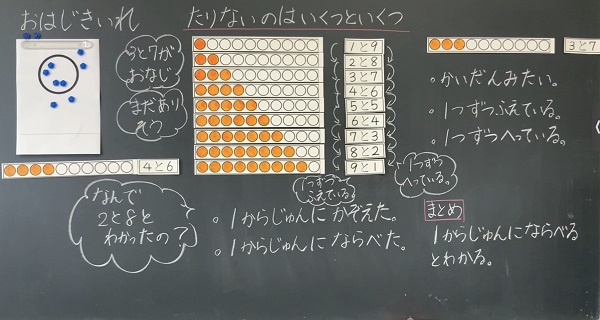 おはじきいれ
たりないのは いくつと いくつ
3と7が
おなじ
まだあり
そう
4と6
なんで
2と8と
わかったの?
1と9
2と8
3と7
4と6
5と5
6と4
7と3
8と2
9と1
1つずつ
ふえている。
1つずつ
へっている。
・1からじゅんに かぞえた。
・1からじゅんに ならべた。
3と7
・かいだんみたい。
・1つずつふえている。
・1つずつへっている。
まとめ
1からじゅんにならべる
とわかる。